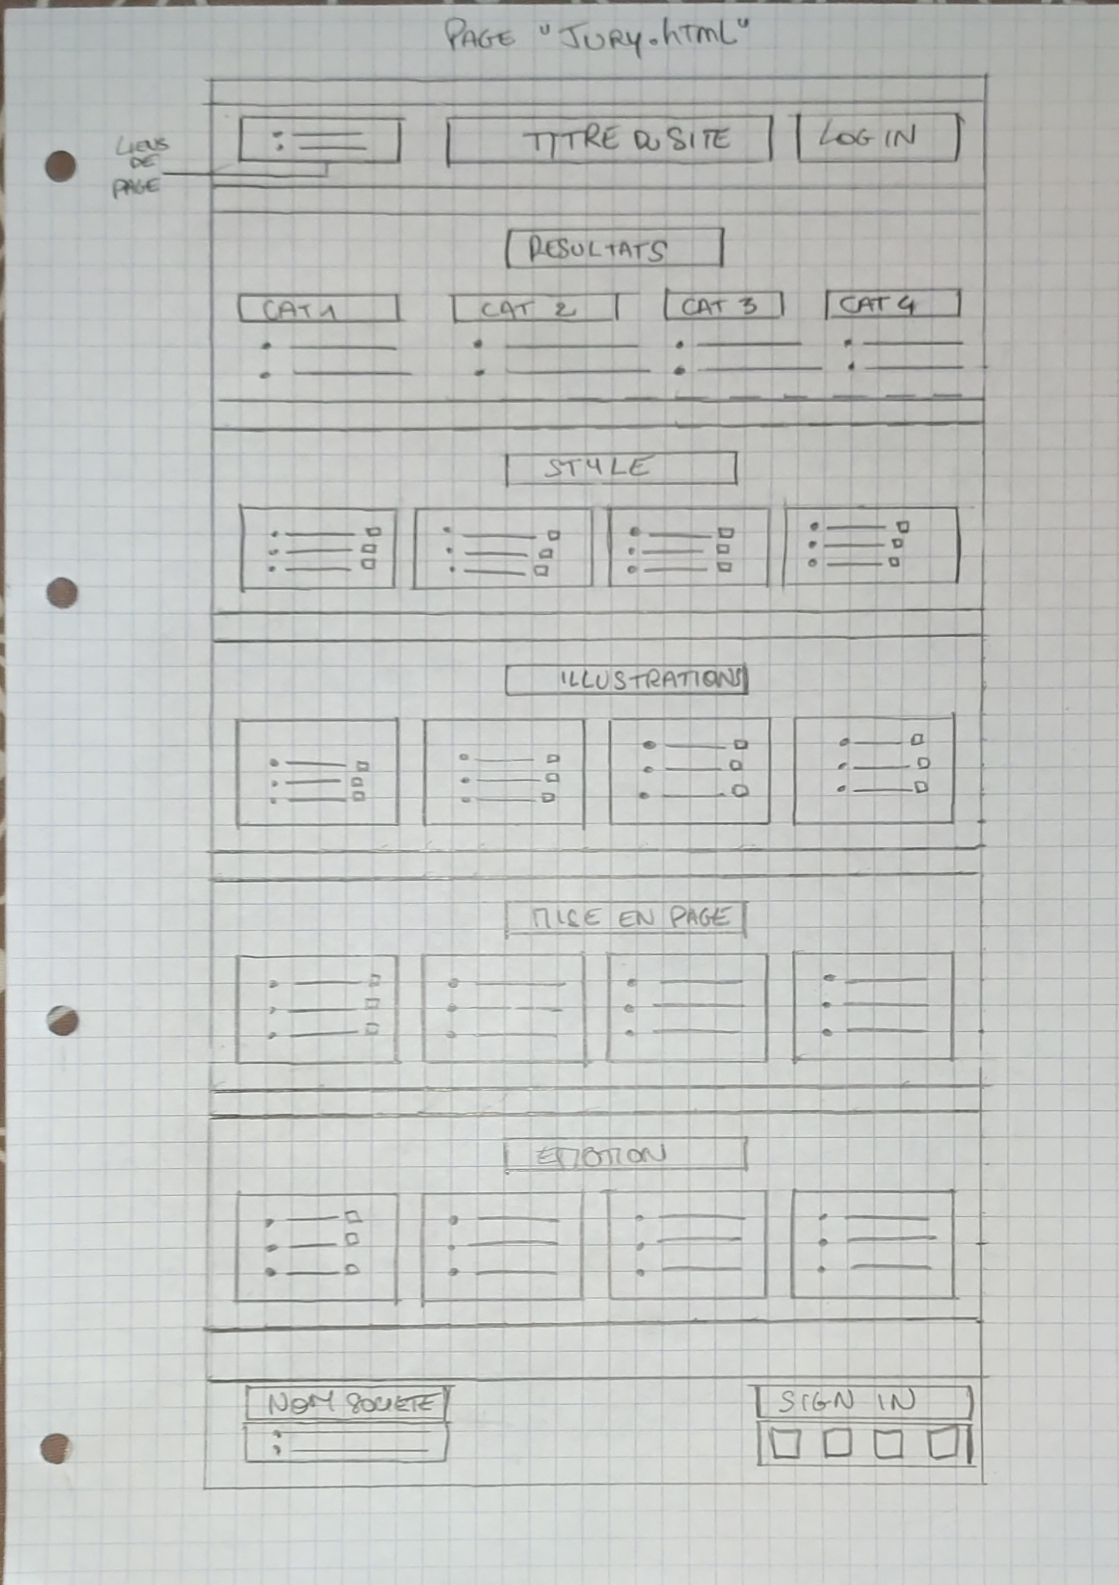 PAGE "JURY.HTML"
LIENS
DE
PAGE
TITRE DU SITE
LOGIN
RESULTATS
CAT 1
CAT 2
CAT 3
CAT 4
STYLE
ILLUSTRATIONS
MISE EN PAGE
EMOTION
NOM SOCIETE
SIGN IN